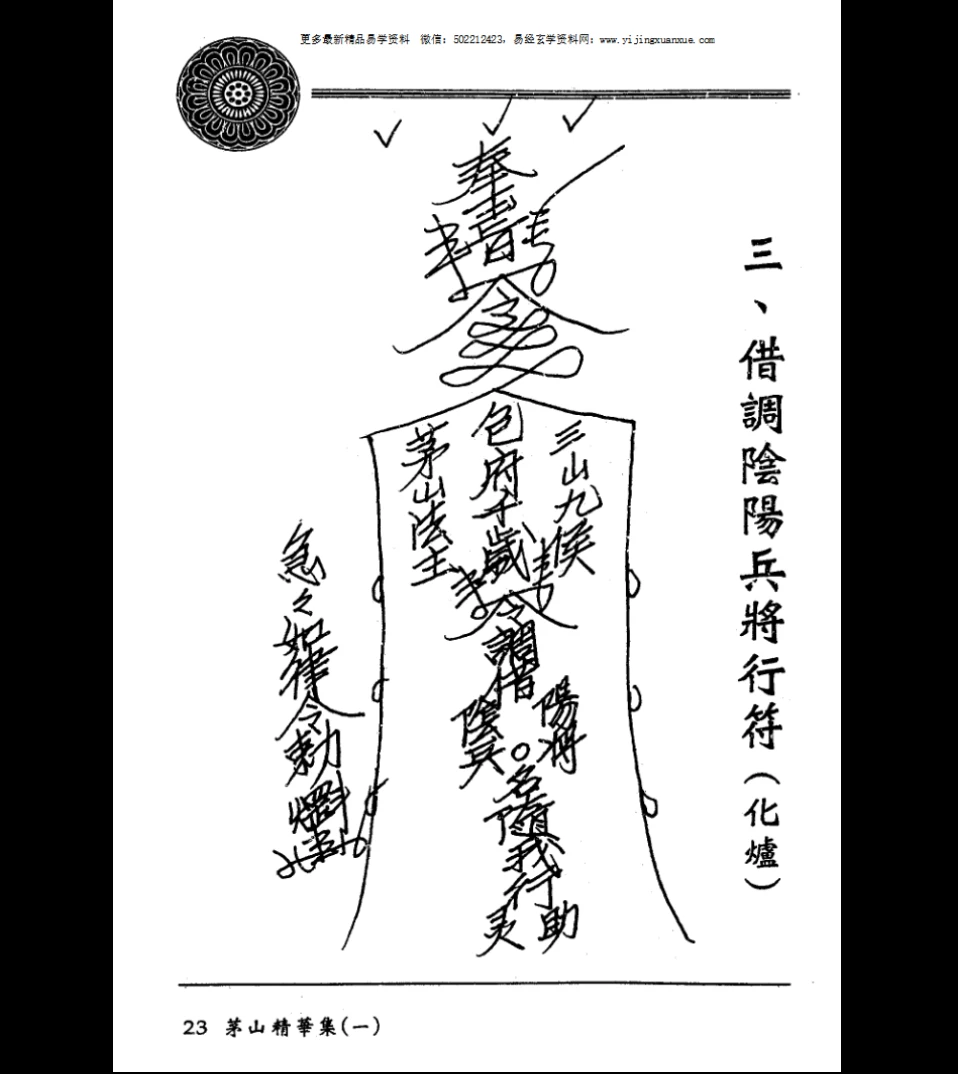 更多最新精品易学资料　微信：502212423，易经玄学资料网：www.yijingxuanxue.com
三、借調陰陽兵將行符（化爐）
奉
三山九侯
包府千歲
茅山法主
令調借
陽將
陰兵
名隨我行
助
灵
急々如律令勅
23 茅山精華集(一)